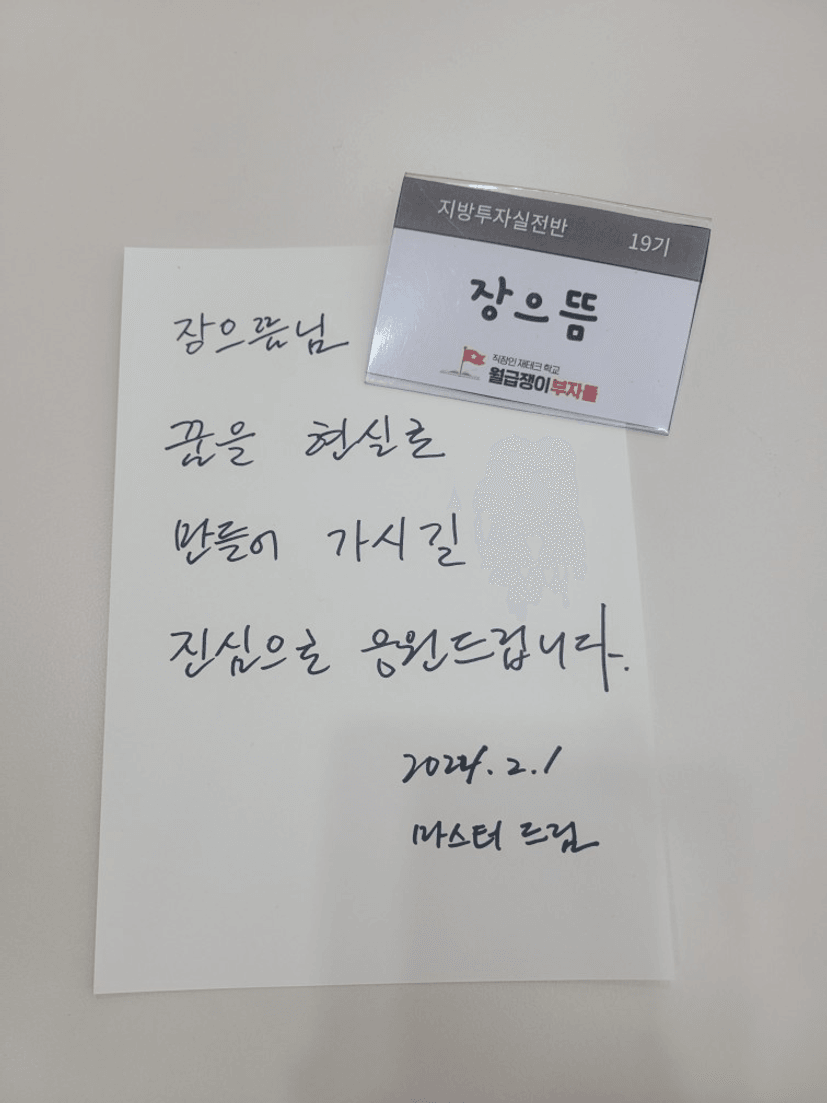 지방투자실전반 19기
장으뜸
직장인 재테크 학교
월급쟁이부자들
장으뜸님
꿈을 현실로
만들어 가시길
진심으로 응원드립니다.
2024. 2. 1
마스터 드림